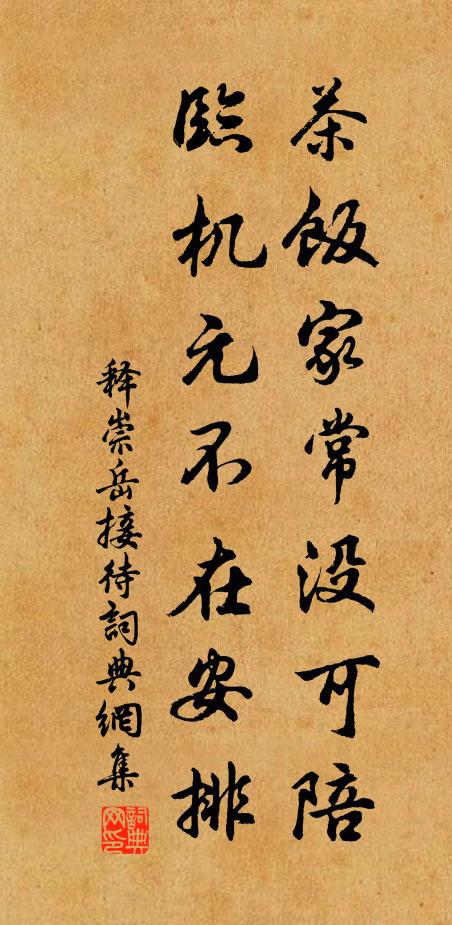 茶飯家常没可陪
臨机元不在安排
释崇岳接待詞典網集
詞典網印